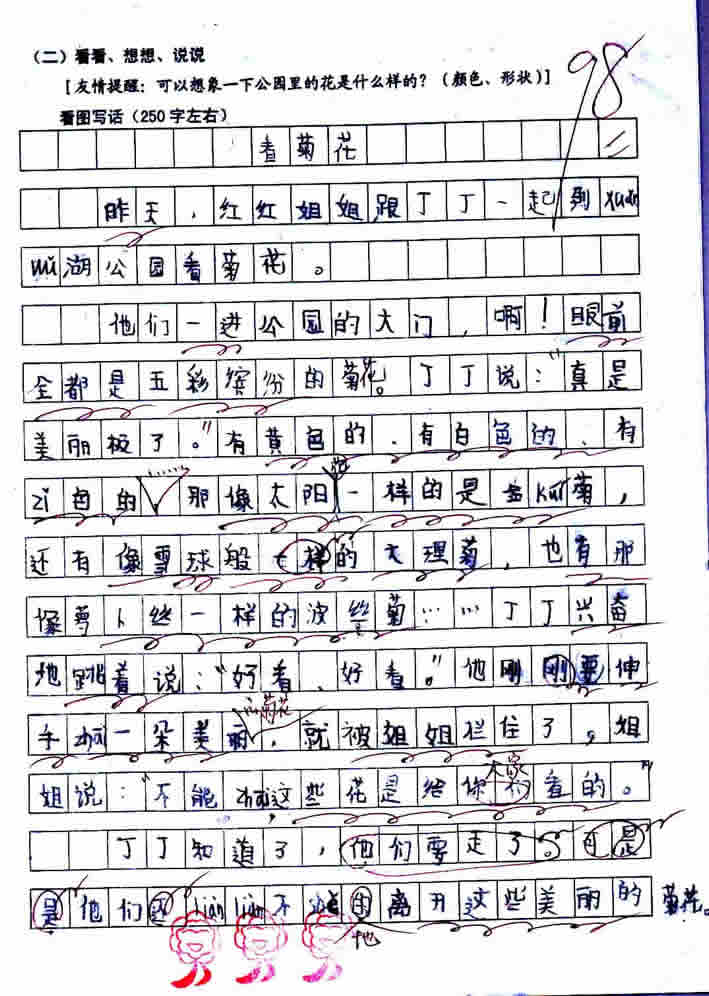 (二)看看、想想、说说
[友情提醒:可以想象一下公园里的花是什么样的?(颜色、形状)]
98
看图写话(250字左右)
看菊花
昨天,红红姐姐跟丁丁一起到xuán
wǔ湖公园看菊花。
他们一进公园的大门,啊!眼前
全都是五彩缤纷的菊花。丁丁说:“真是
美丽极了。”有黄色的、有白色的、有
zǐ色的……那像太阳花一样的是金kuí菊,
还有像雪球般一样的大理菊,也有那
像萝卜丝一样的波丝菊……丁丁兴奋
地跳着说:“好看、好看。”他刚刚要伸
手zhāi一朵美丽的菊花,就被姐姐拦住了,姐
姐说:“不能zhāi,这些花是给你们大家看的。”
丁丁知道了,他们要走了。可是
是他们还liàn liàn不shě的地离开这些美丽的菊花。